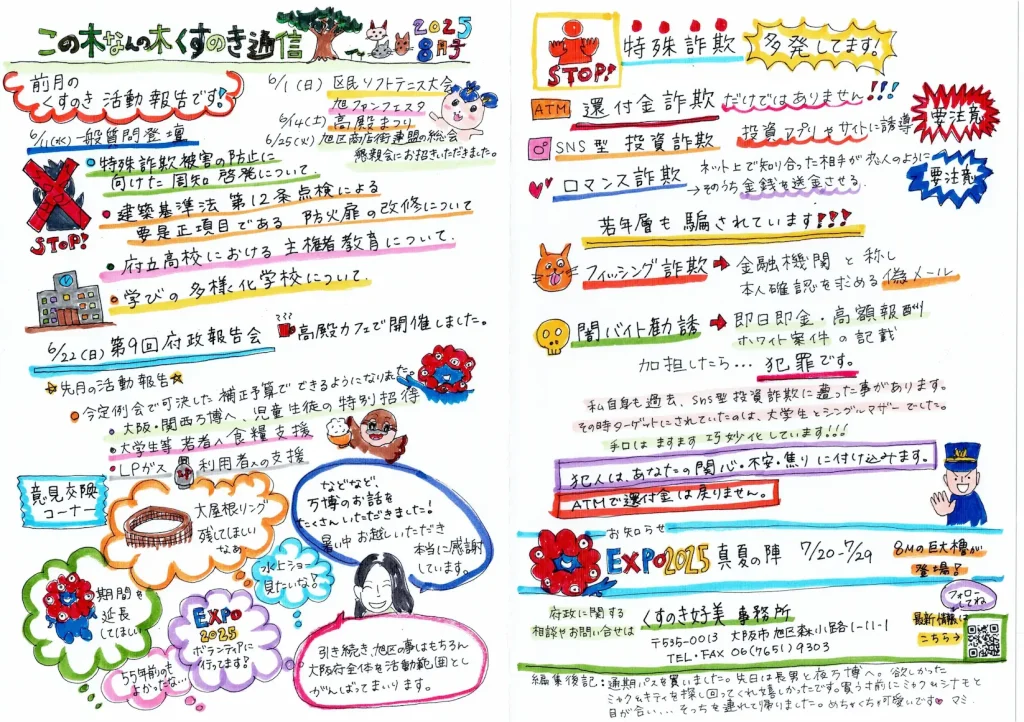 この木なんの木くすのき通信
2025
8月号
前月の
くすのき活動報告です!
6/1(日) 区民ソフトテニス大会
旭ファンフェスタ
6/14(土) 高殿まつり
6/25(火) 旭区商店街連盟の総会
懇親会にお招きいただきました。
6/11(水) 一般質問登壇
・特殊詐欺被害の防止に
向けた周知啓発について.
・建築基準法 第12条点検による
要是正項目である 防火扉の改修について
STOP!
・府立高校における 主権者教育について.
・学びの多様化学校について.
6/22(日) 第9回府政報告会
高殿カフェで開催しました。
先月の活動報告
・今定例会で可決した補正予算で できるようになりました。
・大阪・関西万博へ、児童生徒の特別招待
・大学生等若者へ食糧支援
・LPガス 利用者への支援
意見交換
コーナー
大屋根リング
残してほしい
なぁ
などなど、
万博のお話を
たくさんいただきました!
暑い中お越しいただき
本当に感謝
しています。
期間を
延長
してほしい
水上ショー
見たいな!
EXPO
2025
ボランティアに
行ってます?
55年前のも
よかったな…
引き続き、旭区の事はもちろん
大阪府全体を活動範囲とし
がんばってまいります。
STOP!
特殊詐欺
多発してます!
ATM
還付金詐欺 だけではありません!!!
要注意
SNS型 投資詐欺
投資アプリやサイトに誘導
ロマンス詐欺
ネット上で知り合った相手が恋人のように
→そのうち金銭を送金させる.
要注意
若年層も騙されています!!!
フィッシング詐欺→金融機関と称し
本人確認を求める偽メール
闇バイト勧誘→即日即金・高額報酬
ホワイト案件の記載
加担したら… 犯罪です。
私自身も過去、SNS型投資詐欺に遭った事があります。
その時ターゲットにされていたのは、大学生とシングルマザーでした。
手口はますます巧妙化しています!!!
犯人は、あなたの関心・不安・焦りに付け込みます。
ATMで還付金は戻りません。
お知らせ
EXPO2025 真夏の陣 7/20-7/29
8Mの巨大櫓が
登場!
府政に関する
相談やお問い合せは
くすのき好美 事務所
〒535-0013 大阪市旭区森小路1-11-1
TEL・FAX 06(7651)9303
フォロー
してね
最新情報は
こちら→
編集後記:通期パスを買いました。先日は長男と夜万博へ。欲しかった
ミャクミャクキティを探し回ってくれて嬉しかったです。買う前にミャクミャクシナモと
目が合い… そっちを連れて帰りました。めちゃくちゃ可愛いです♥ マミ